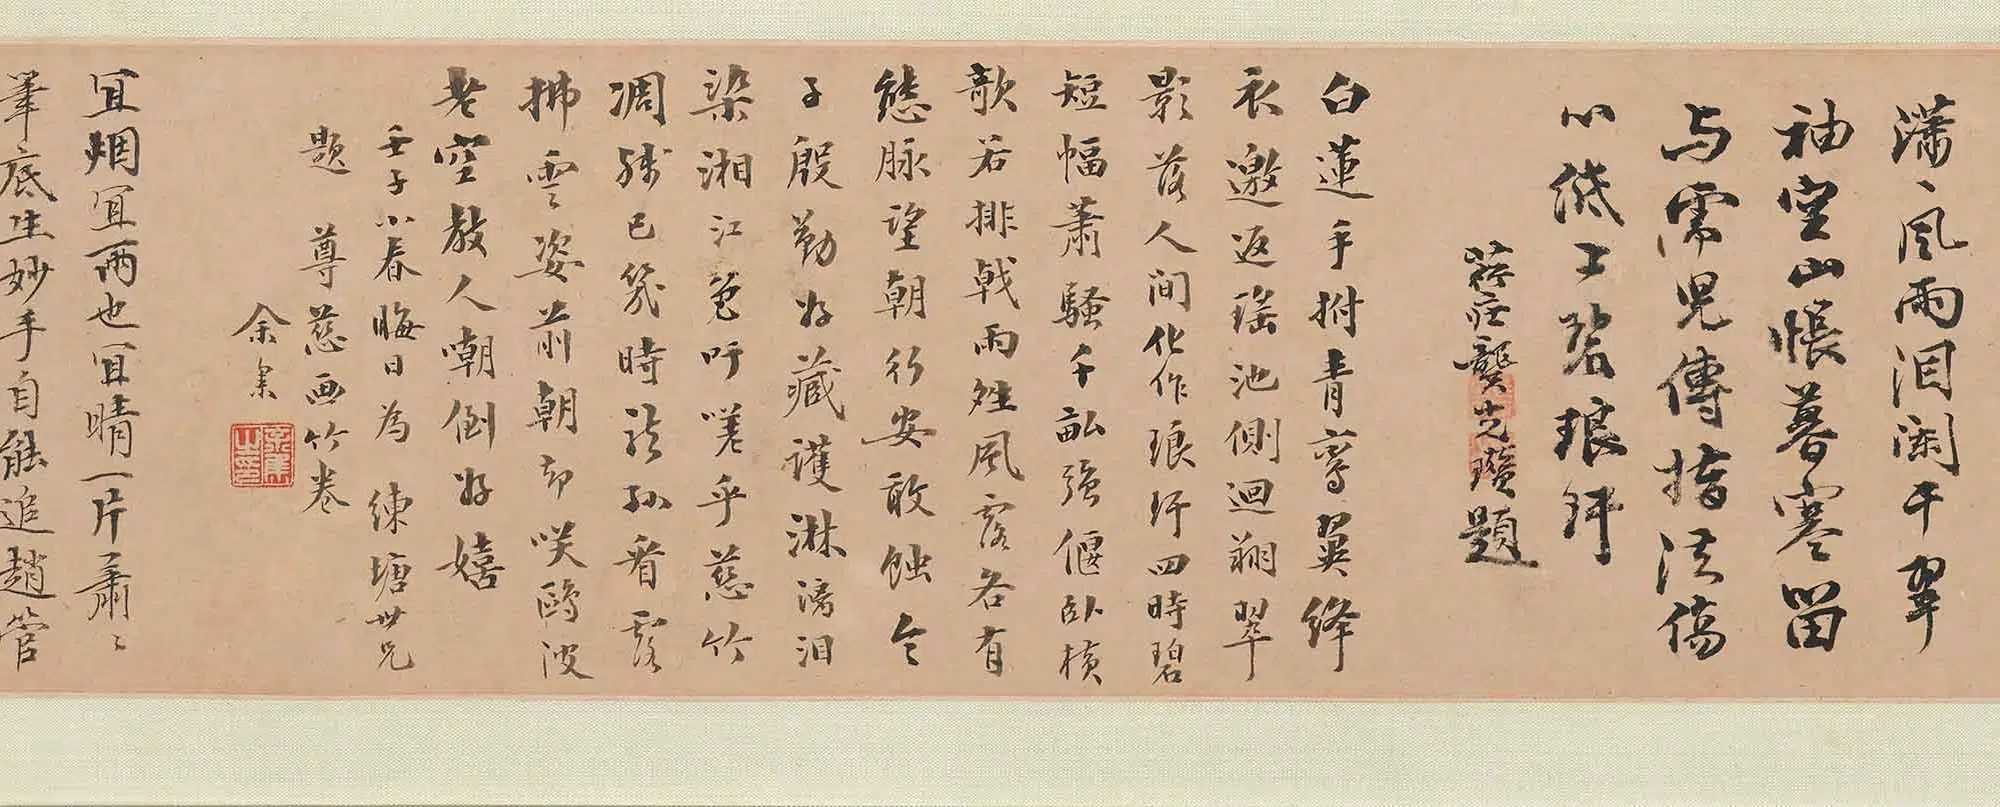 潇〻風雨泪闌干翠
袖空山悵暮寒留
与需兒傳指法傷
心紙上碧琅玕
蒋庄龔光瓚題
白蓮手拊青鸞翼絳
衣邀返瑤池側迴翔翠
影落人間化作琅玕四時碧
短幅蕭騷千畝強偃臥横
欹若排戟雨姓風露各有
態脉望朝行安敢蝕今
子殷勤好藏護淋漓泪
染湘江色吁嗟乎慈竹
凋殘已幾時龍孫看露
拂雲姿前朝却咲鷗波
老空教人嘲倒好嬉
壬子小春晦日為 練塘世兄
題 尊慈画竹卷
余集
宜烟宜雨也宜晴一片肅〻
筆底生妙手自能追趙管